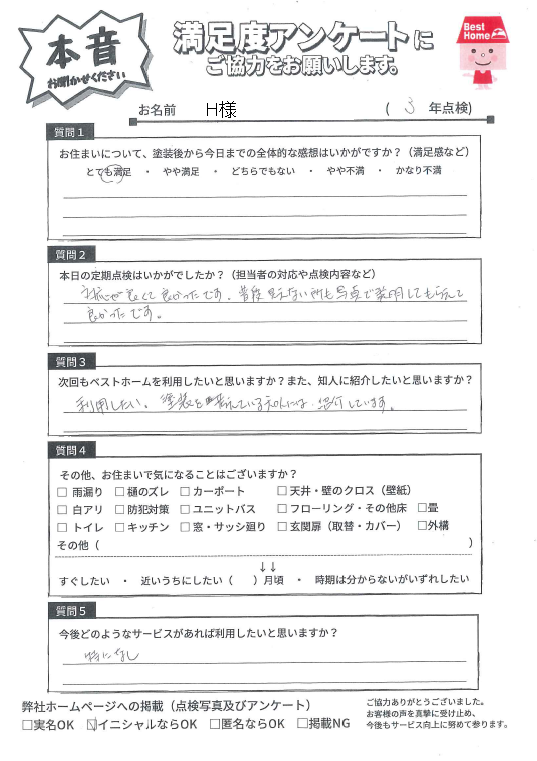 本音
お聞かせください
満足度アンケートに
ご協力をお願いします。
Best
Home
お名前 H様 ( 3 年点検)
質問1
お住まいについて、塗装後から今日までの全体的な感想はいかがですか?(満足感など)
とても満足 ・ やや満足 ・ どちらでもない ・ やや不満 ・ かなり不満
質問2
本日の定期点検はいかがでしたか?(担当者の対応や点検内容など)
対応が良くて良かったです。普段見えない所も写真で説明してもらえて
良かったです。
質問3
次回もベストホームを利用したいと思いますか?また、知人に紹介したいと思いますか?
利用したい。塗装を考えている知人には、紹介しています。
質問4
その他、お住まいで気になることはございますか?
□ 雨漏り □ 樋のズレ □ カーポート □ 天井・壁のクロス(壁紙)
□ 白アリ □ 防犯対策 □ ユニットバス □ フローリング・その他床 □畳
□ トイレ □ キッチン □ 窓・サッシ廻り □ 玄関扉(取替・カバー) □外構
その他( )
↓↓
すぐしたい ・ 近いうちにしたい( )月頃 ・ 時期は分からないがいずれしたい
質問5
今後どのようなサービスがあれば利用したいと思いますか?
特になし
弊社ホームページへの掲載(点検写真及びアンケート)
□実名OK ☑イニシャルならOK □匿名ならOK □掲載NG
ご協力ありがとうございました。
お客様の声を真摯に受け止め、
今後もサービス向上に努めて参ります。